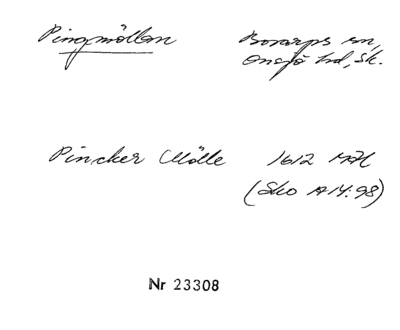 Pingmöllan Bosarps sn,
Onsjö hd, Sk.
Pincker Mölle 1612 MH
(Sko A 14:98)
Nr 23308